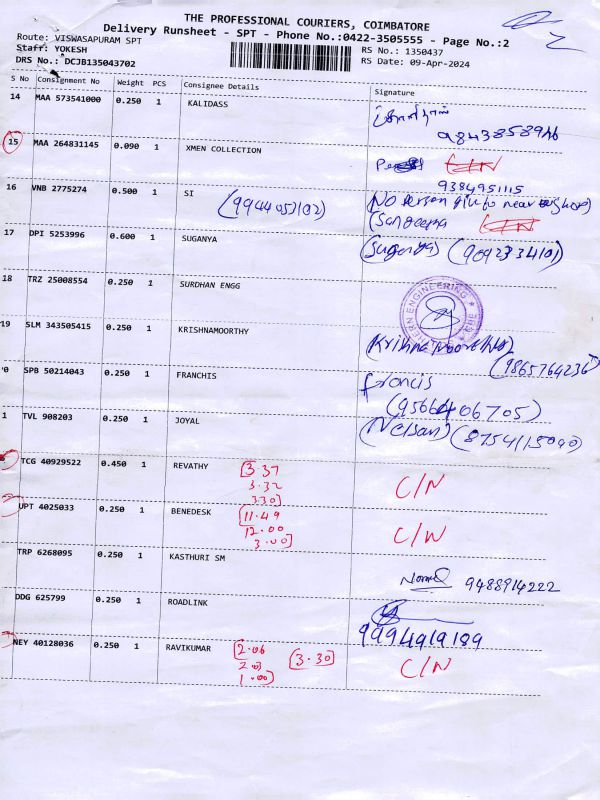 THE PROFESSIONAL COURIERS, COIMBATORE
Delivery Runsheet - SPT - Phone No.:0422-3505555 - Page No.:2
Route: VISWASAPURAM SPT
RS No.: 1350437
Staff: YOKESH
RS Date: 09-Apr-2024
DRS No.: DCJB135043702
S No Consignment No Weight PCS Consignee Details Signature
14 MAA 573541000 0.250 1 KALIDASS
9843858946
15 MAA 264831145 0.090 1 XMEN COLLECTION
9384951115
16 VNB 2775274 0.500 1 SI
(9944053102)
(No person
17 DPI 5253996 0.600 1 SUGANYA
(Suganya) (9092334101)
18 TRZ 25008554 0.250 1 SURDHAN ENGG
ENGINEERING
19 SLM 343505415 0.250 1 KRISHNAMOORTHY
(9865764236)
SPB 50214043 0.250 1 FRANCHIS
francis
(9566406705)
TVL 908203 0.250 1 JOYAL
(Nelsan) (8754115090)
TCG 40929522 0.450 1 REVATHY
3.37
3.32
3.30
C/N
UPT 4025033 0.250 1 BENEDESK
11.49
12.00
3.00
C/N
TRP 6268095 0.250 1 KASTHURI SM
9488914222
DDG 625799 0.250 1 ROADLINK
9994919189
NEY 40128036 0.250 1 RAVIKUMAR
2.06
(3.30)
1.00
C/N